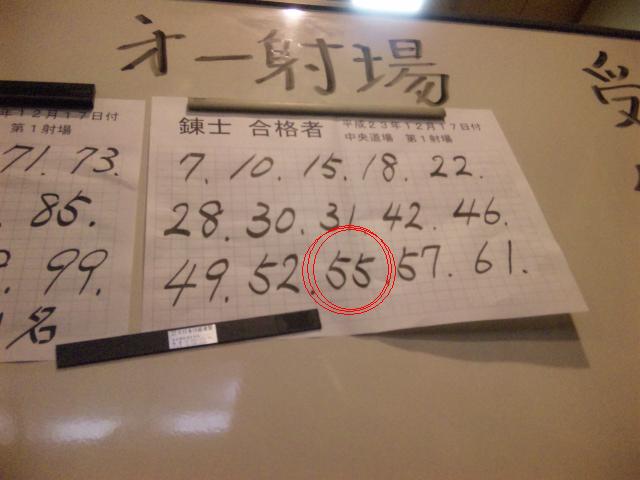 第一射場
受
年12月17日付
第1射場
71. 73.
85.
99.
名
錬士 合格者
平成23年12月17日付
中央道場 第1射場
7. 10. 15. 18. 22.
28. 30. 31. 42. 46.
49. 52. 55. 57. 61.